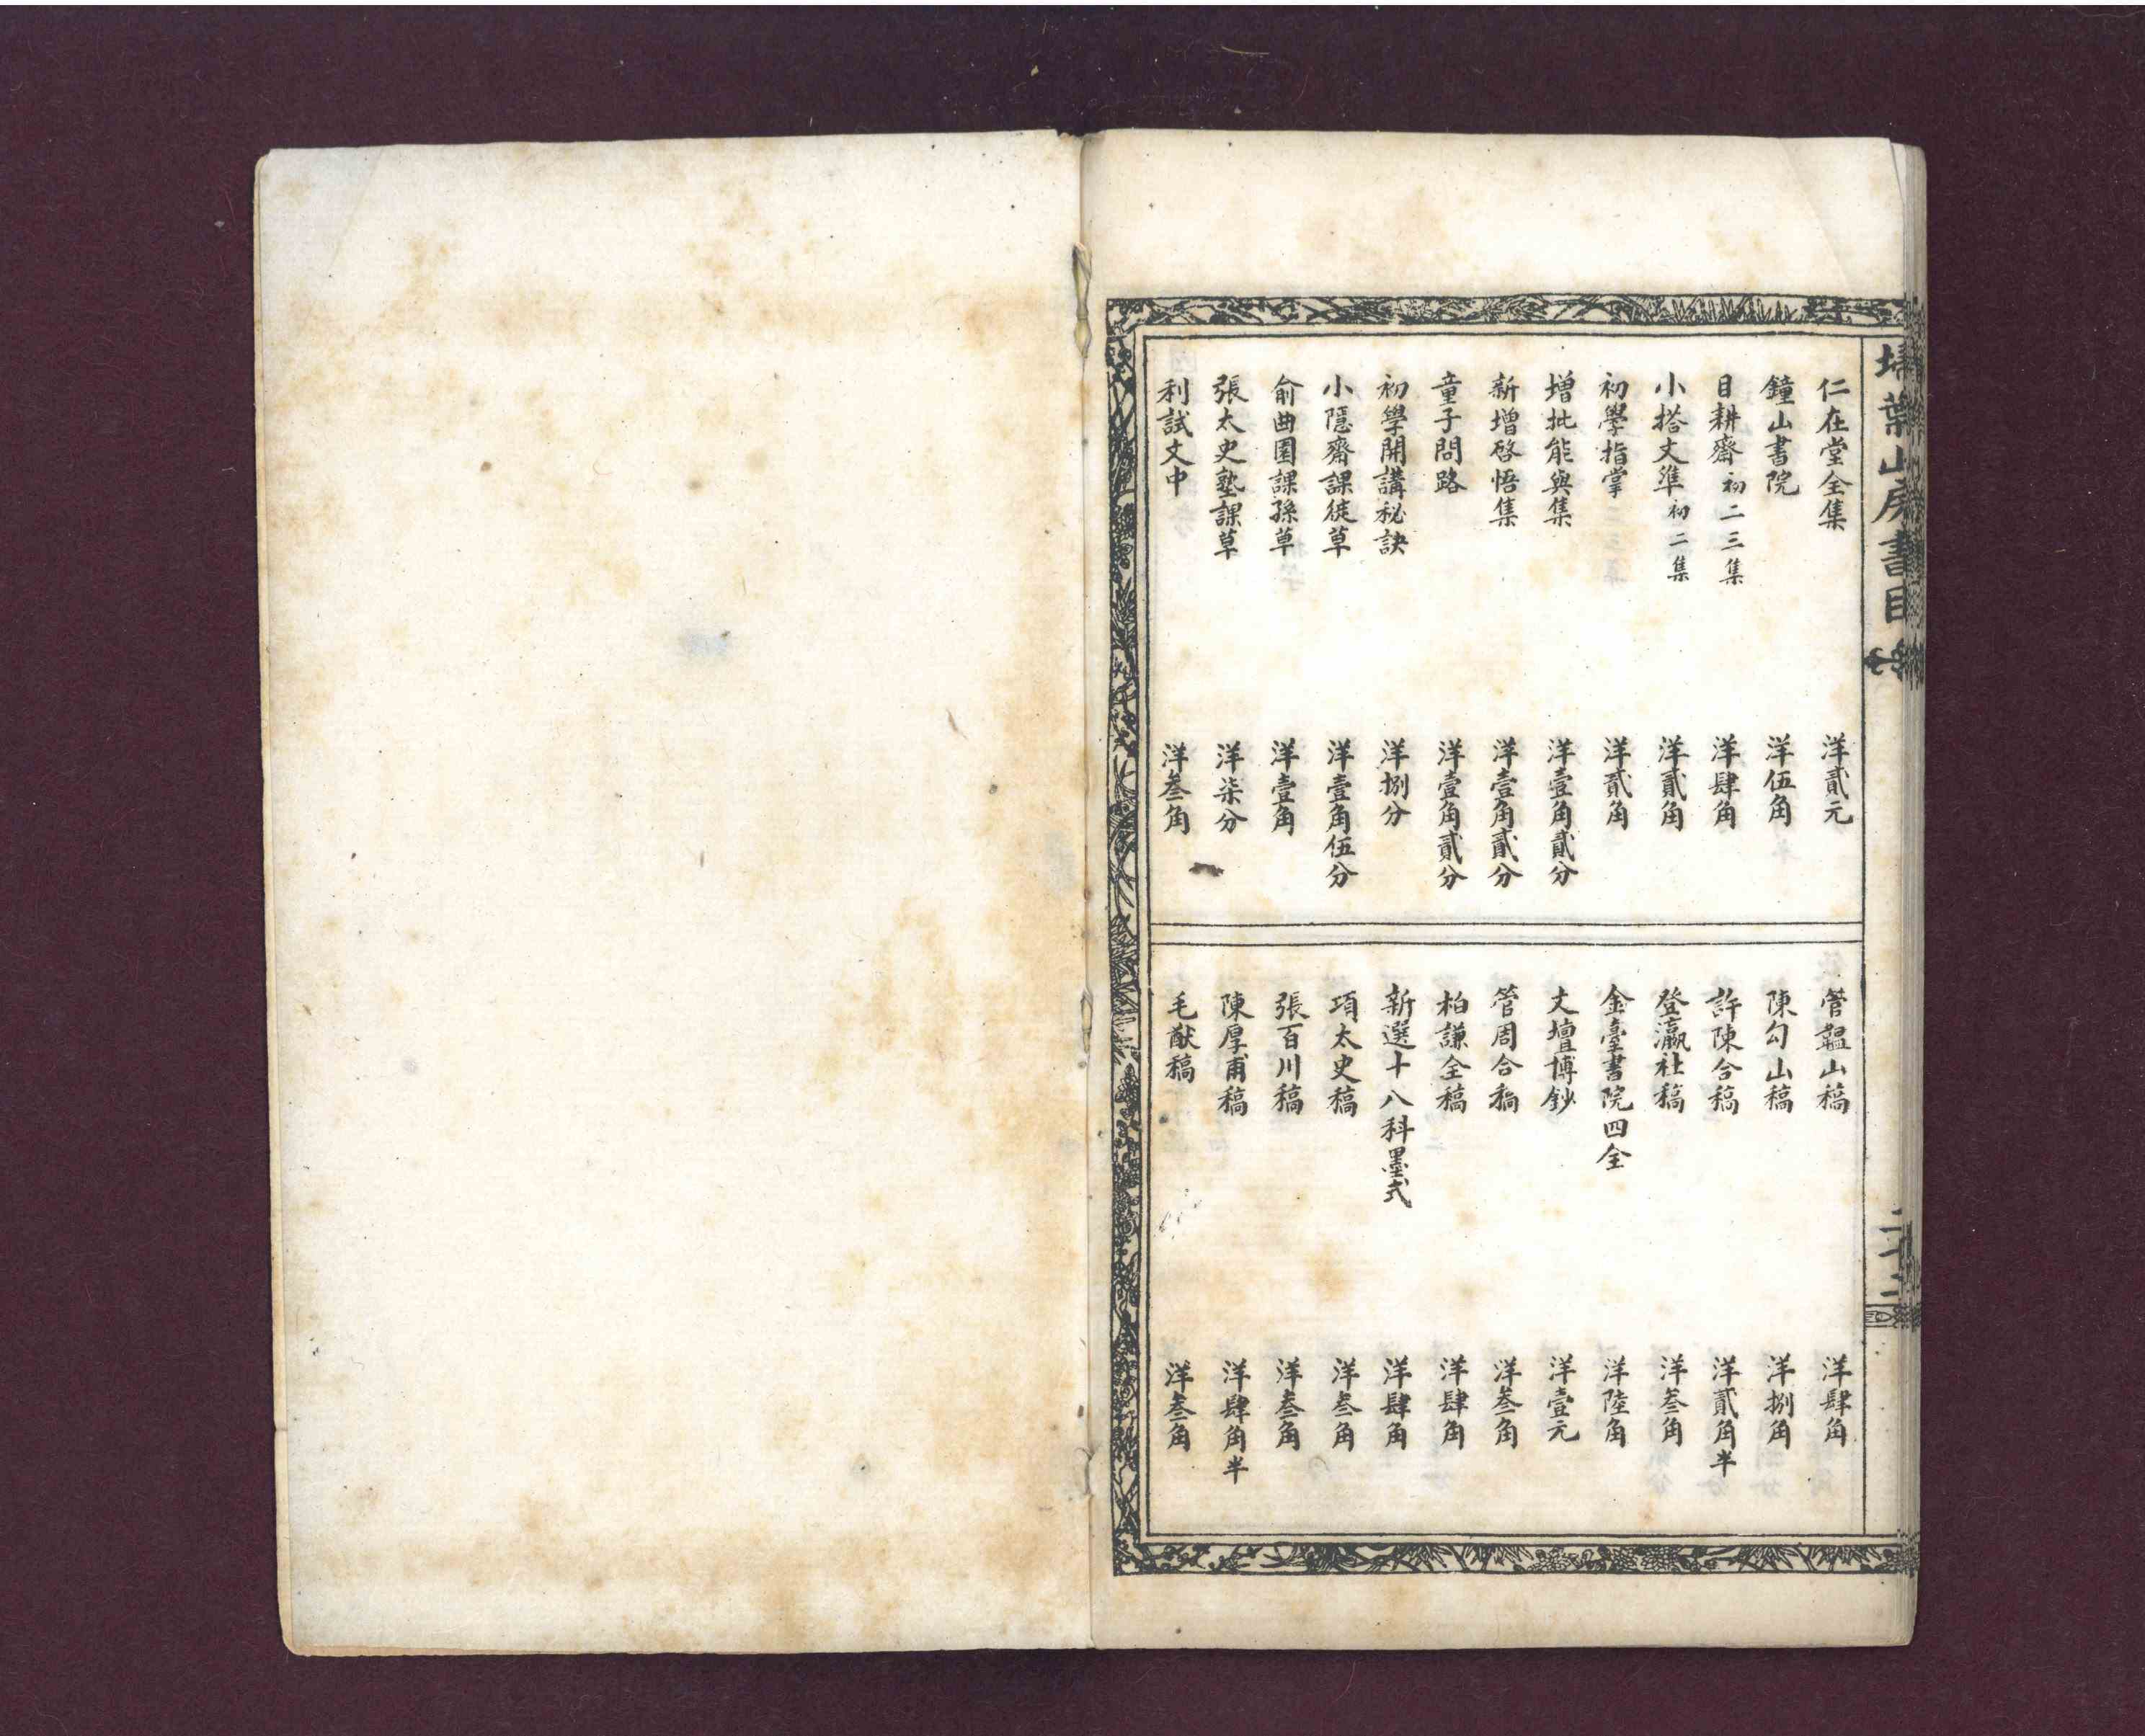 掃葉山房書目
仁在堂全集 洋貳元
鐘山書院 洋伍角
目耕齋 初二三集 洋肆角
小搭文準 初二集 洋貳角
初學指掌 洋貳角
增批能與集 洋壹角貳分
新增啓悟集 洋壹角貳分
童子問路 洋壹角貳分
初學開講秘訣 洋捌分
小隱齋課徒草 洋壹角伍分
俞曲園課孫草 洋壹角
張太史塾課草 洋柒分
利試文中 洋叁角
管韞山稿 洋肆角
陳勾山稿 洋捌角
許陳合稿 洋貳角半
登瀛社稿 洋叁角
金臺書院四全 洋陸角
文壇博鈔 洋壹元
管周合稿 洋叁角
柏謙全稿 洋肆角
新選十八科墨式 洋肆角
項太史稿 洋叁角
張百川稿 洋叁角
陳厚甫稿 洋肆角半
毛猷稿 洋叁角